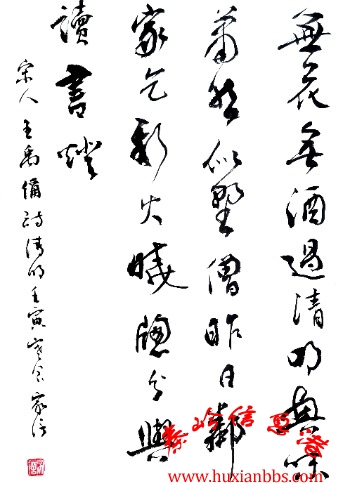 無花無酒過清明興味
蕭然似野僧昨日鄰
家乞新火曉窗分與
讀書燈
宋人王禹偁詩清明壬寅
www.huxianbbs.com